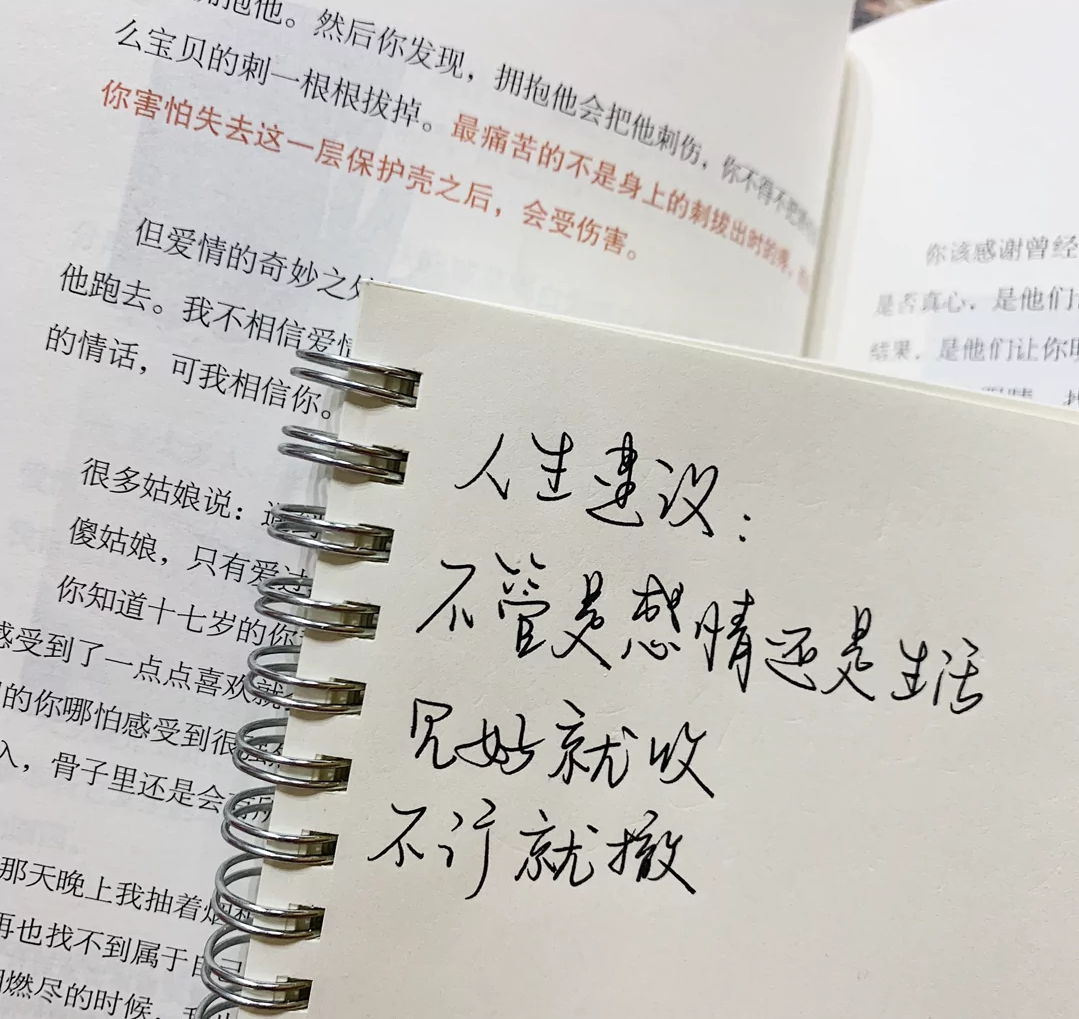 拥抱他。然后你发现，拥抱他会把他刺伤，你不得不把
么宝贝的刺一根根拔掉。最痛苦的不是身上的刺拔出时的
你害怕失去这一层保护壳之后，会受伤害。
但爱情的奇妙之处
他跑去。我不相信爱情
的情话，可我相信你。
很多姑娘说：
傻姑娘，只有爱过
你知道十七岁的你
感受到了一点点喜欢就
的你哪怕感受到很
入，骨子里还是会
那天晚上我抽着烟
再也找不到属于自己
燃尽的时候，我
你该感谢曾经
是否真心，是他们
结果，是他们让你明
人生建议：
不管是感情还是生活
见好就收
不行就撤